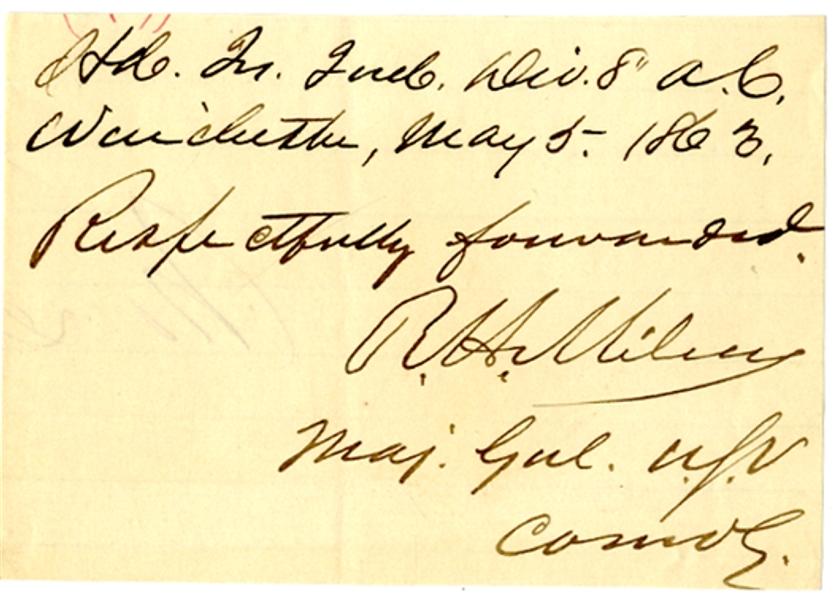 Hd. Qr. 2nd. Div. 8" A.C.
Winchester, May 5. 1863.
Respectfully forwarded.
R.H. Milroy
Maj. Genl. U.S.V
Comdg.